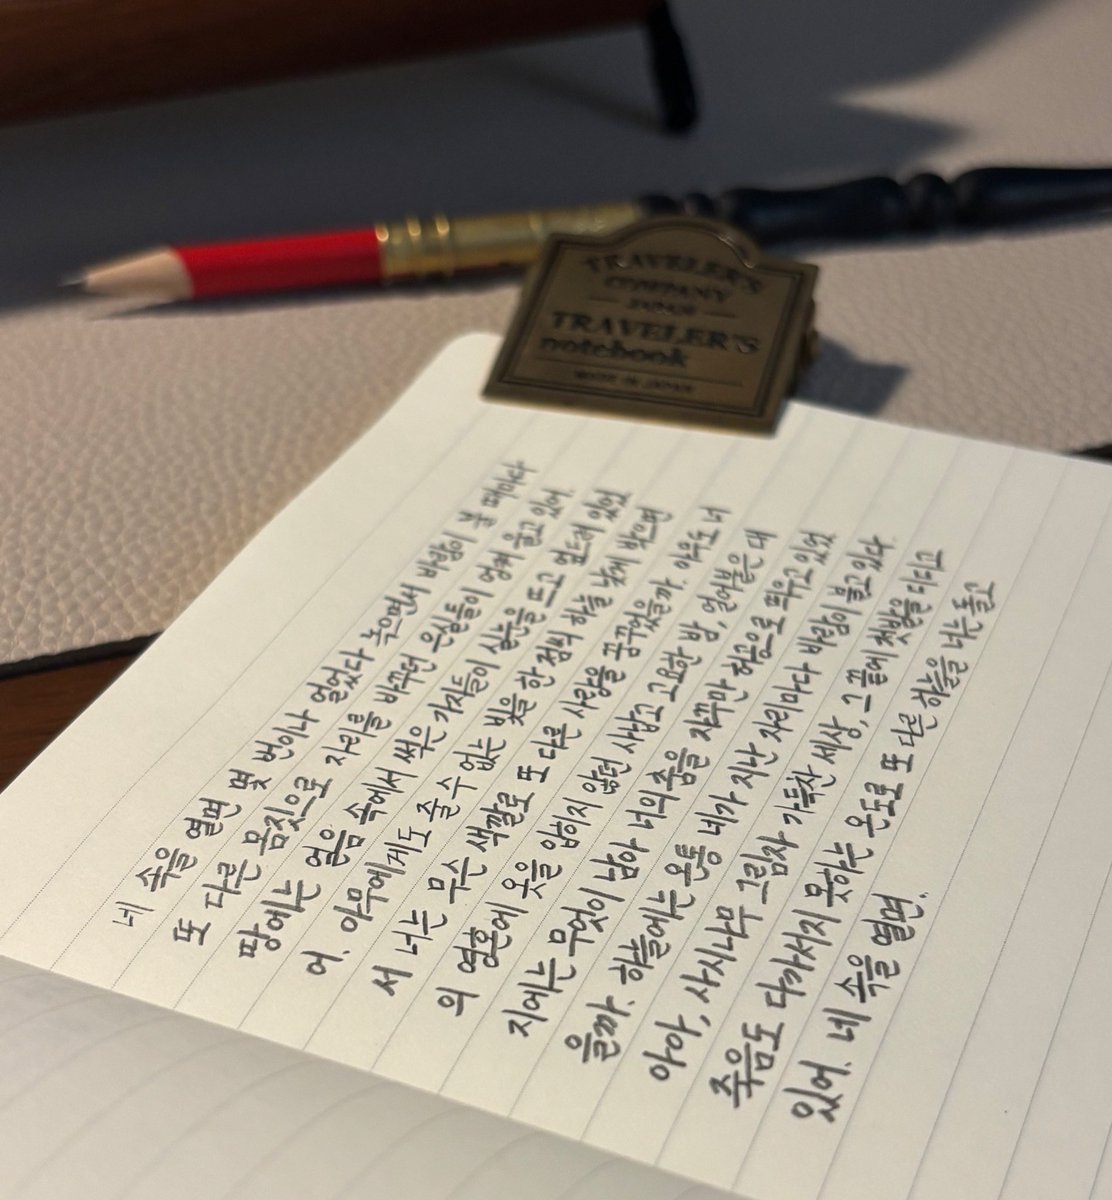 TRAVELER'S
COMPANY
JAPAN
TRAVELER'S
notebook
MADE IN JAPAN
네 속을 열면 몇 번이나 얼었다 녹으면서 바람이 불 때마다
또 다른 몸짓으로 자리를 바꾸던 은실들이 엉켜 울고 있어.
땅에는 얼음 속에서 썩은 가지들이 실눈을 뜨고 엎드려 있었
어. 아무에게도 줄 수 없는 빛을 한 점씩 하늘 낮게 박으면
서 너는 무슨 색깔로 또 다른 사랑을 꿈꾸었을까. 아무도 너
의 영혼에 옷을 입히지 않던 사납고 고요한 밤, 얼어붙은 대
지에는 무엇이 남아 너의 춤을 자꾸만 허공으로 띄우고 있었
을까. 하늘에는 온통 네가 지난 자리마다 바람이 불고 있다.
아아, 사시나무 그림자 가득찬 세상, 그 끝에 첫발을 디디고
죽음도 다가서지 못하는 온도로 또 다른 하늘을 너는 돌고
있어. 네 속을 열면.